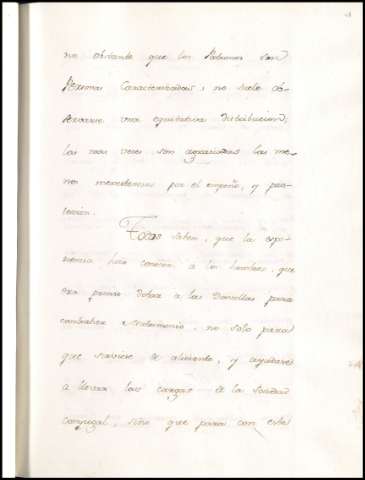 no obstante que los Patronos son
Personas Caracterizadas, no suele ob-
servarse una equitativa distribucion,
las mas veces son agraciadas las me-
nos menesterosas por el empeño, y pro-
teccion.
Todos saben, que la expe-
riencia hizo conocer a los hombres, que
era preciso dotar a las Doncellas para
contraher Matrimonio, no solo para
que sirviese de alimento, y ayudase
a llevar las cargas de la Sociedad
conyugal, sino que para con este